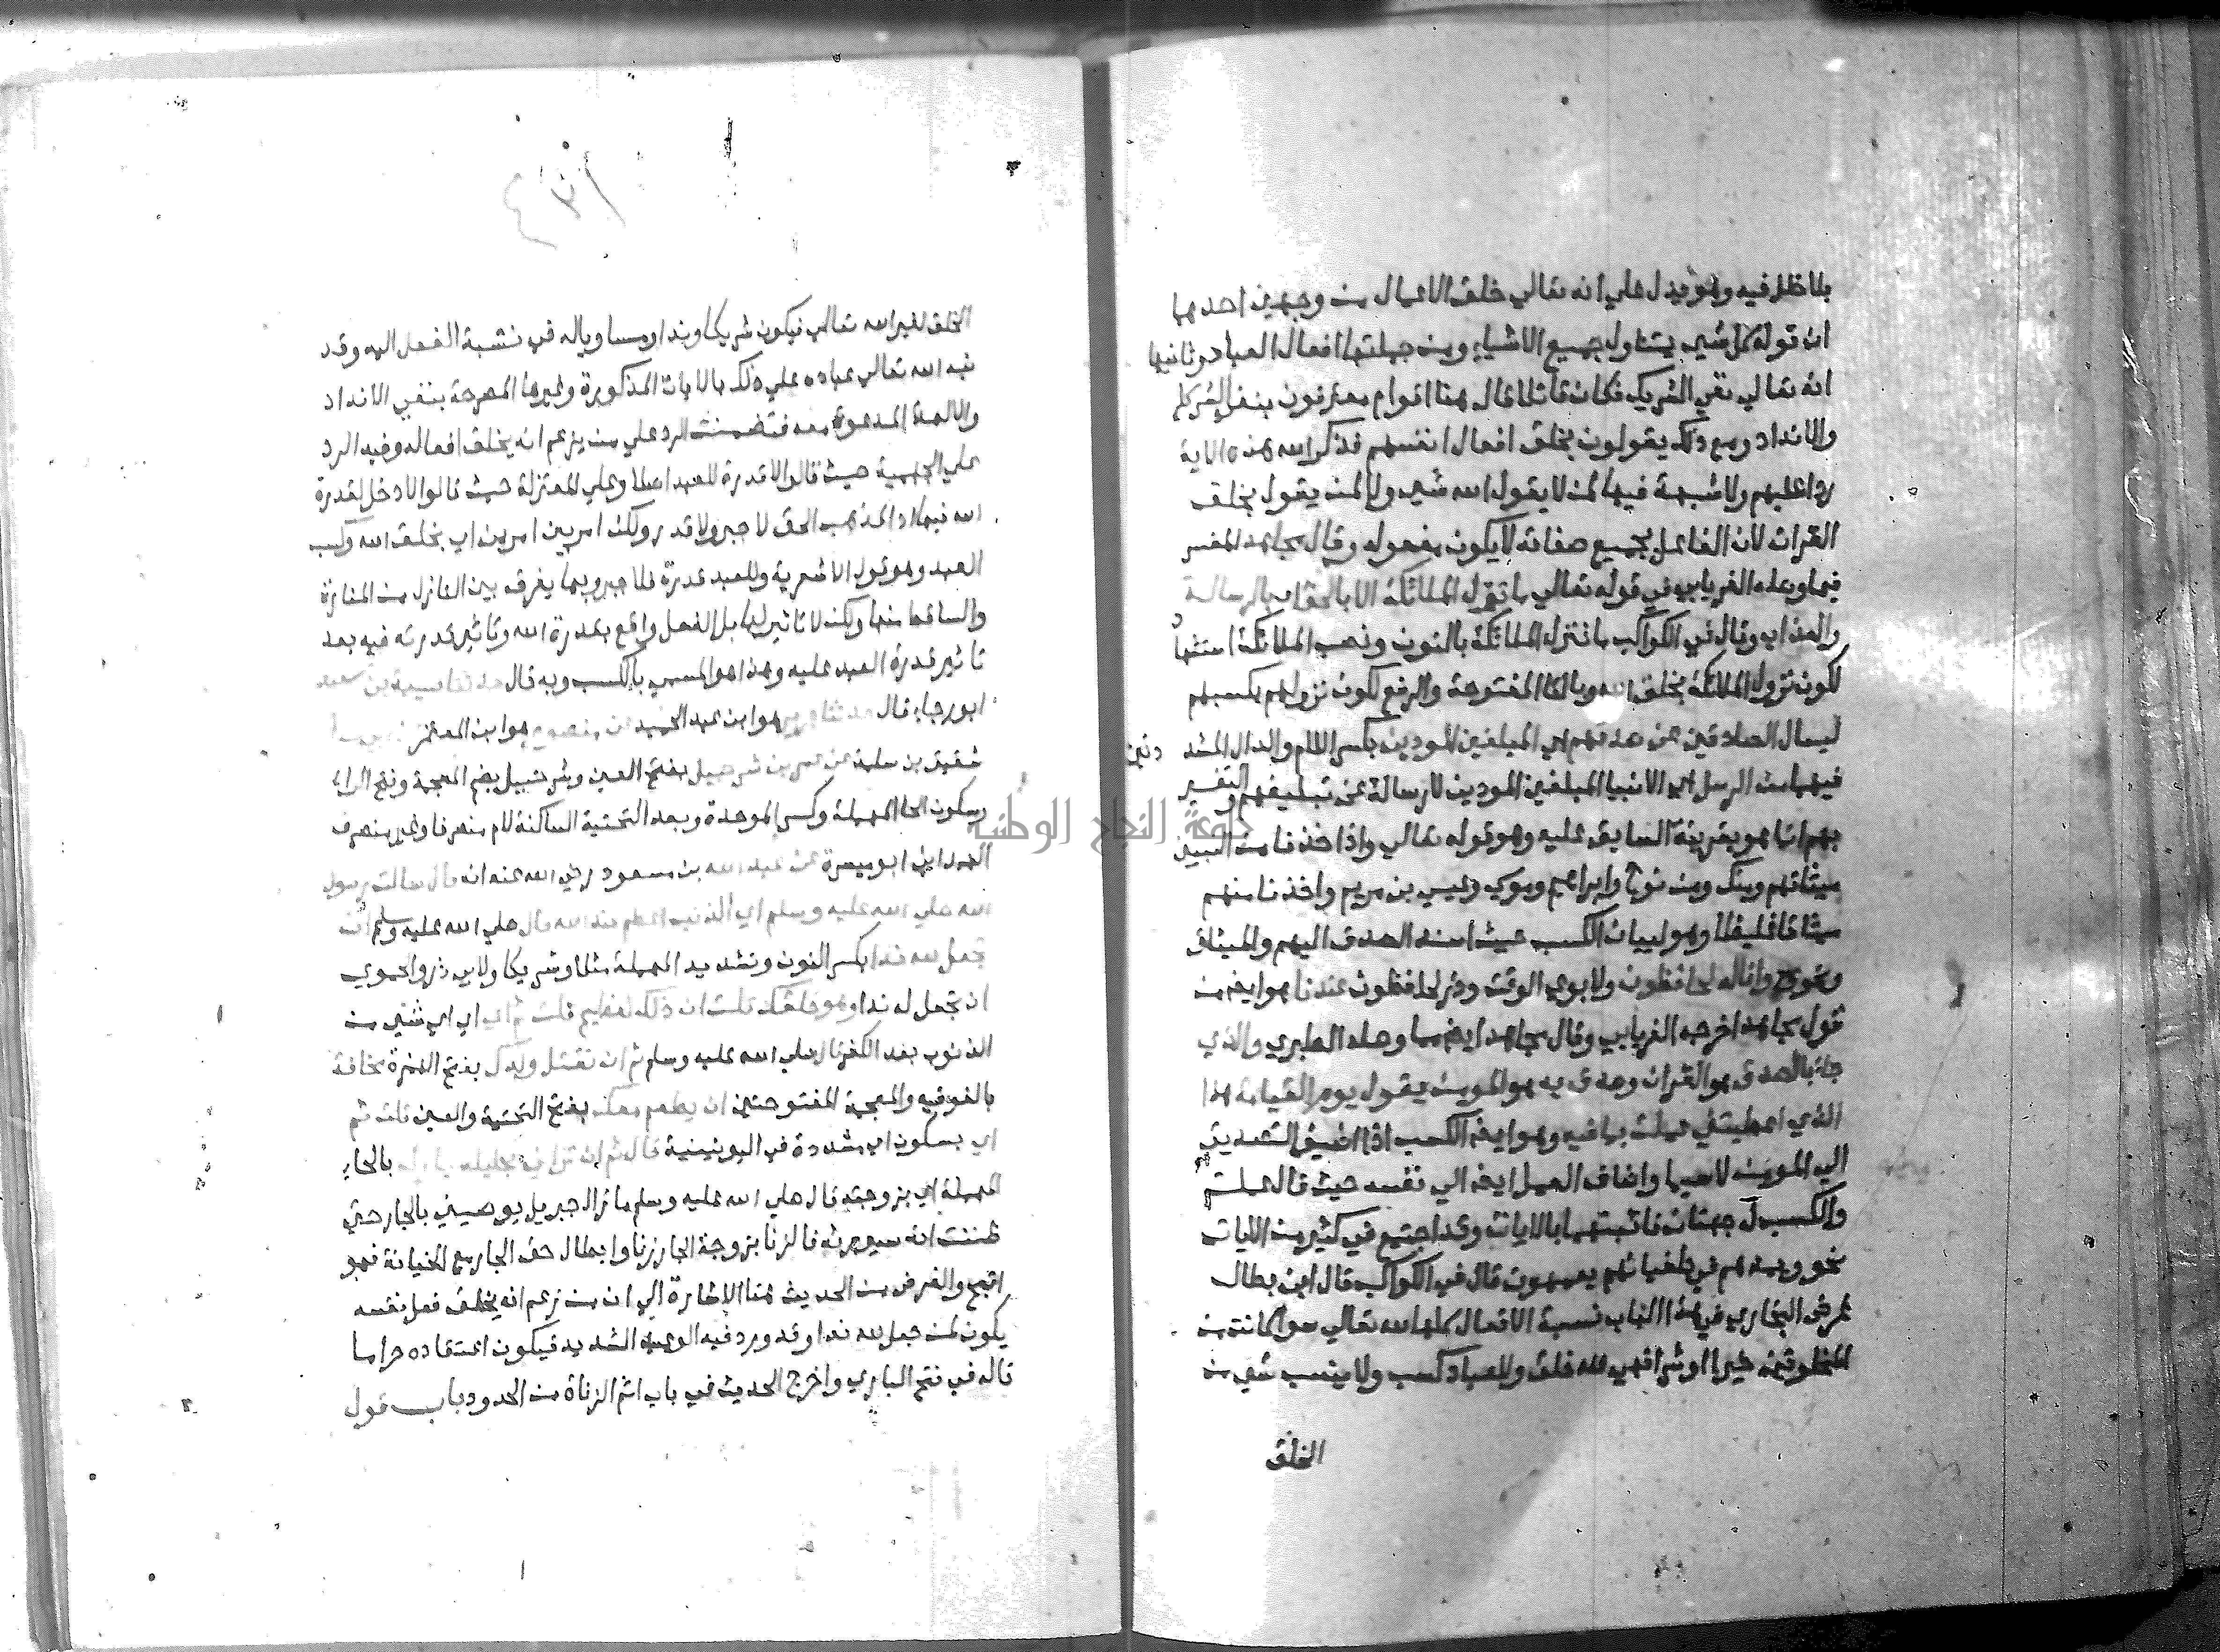 بلا خلل فيه وهو يدل علي انه تعالي خلق الاعمال من وجهين احدهما
ان قوله كل شي يتناول جميع الاشياء ومن جملتها افعال العباد وثانيها
انه تعالي نفي الشريك فكان قائلا قال هنا اقوام معترفون بنفي الشرك
والانداد ومع ذلك يقولون بخلق افعال انفسهم فذكر الله هذه الاية
ردا عليهم ولا شبهة فيها لمن لا يقول الله شي ولا لمن يقول بخلق
القران لان الفاعل بجميع صفاته لا يكون مفعوله وقال مجاهد المفسر
فيما وصله الفريابي في قوله تعالي ما تنزل الملائكة الا بالحق اي بالرسالة
والعذاب وقال في الكواكب ما ننزل الملائكة بالنون ونصب الملائكة
لكون نزول الملائكة بخلق الله وبالتا المفتوحة والرفع لكون نزولهم بكسبهم
ليسال الصادقين عن صدقهم اي المبلغين المودين بكسر اللام والدال المشد دتين
فيهما من الرسل اي الانبيا المبلغين المودين لارسالة عن تبليغهم والتفسير
بهم انما هو بقرينة السابق عليه وهو قوله تعالي واذ اخذنا من النبيين
ميثاقهم ومنك ومن نوح وابراهيم وموسي وعيسي بن مريم واخذنا منهم
ميثاقا غليظا وهو لبيان الكسب حيث اسند الصدق اليهم والميثاق
ونحوه وانا له لحافظون ولابوي الوقت وذر لحافظون عندنا هو ايضا من
قول مجاهد اخرجه الفريابي وقال مجاهد ايضا مما وصله الطبري والذي
جاء بالصدق هو القران وصدق به هو المومن يقول يوم القيامة هذا
الذي اعطيتني عملت بما فيه وهو ايضا الكسب اذا اضيف التصديق
الي المومن لا سيما واضاف العمل ايضا الي نفسه حيث قال عملت
والكسب له جهتان فاثبتهما بالايات وقد اجتمع في كثير من الايات
نحو ويمدهم في طغيانهم يعمهون قال في الكواكب قال ابن بطال
غرض البخاري في هذا الباب نسبة الافعال كلها لله تعالي سوا كانت من
المخلوقين خيرا او شرا فهي لله خلق وللعباد كسب ولا ينسب شي من
الخلق
الخلق لغير الله تعالي فيكون شريكا وندا ومساويا له في نسبة الفعل اليه وقد
نبه الله تعالي عباده علي ذلك بالايات المذكورة وغيرها المصرحة بنفي الانداد
والالهة المدعوة معه فتضمنت الرد علي من يزعم انه يخلق افعاله وفيه الرد
علي الجهمية حيث قالوا لا قدرة للعبد اصلا وعلي المعتزلة حيث قالوا لا دخل لقدرة
الله فيها اذ المذهب الحق لا جبر ولا قدر ولكن امر بين امرين اي بخلق الله وكسب
العبد وهو قول الاشعرية وللعبد قدرة فلا جبر وبها يفرق بين النازل من المنارة
والساقط منها ولكن لا تاثير لها بل الفعل واقع بقدرة الله وتاثير قدرته فيه بعد
تاثير قدرة العبد عليه وهذا هو المسمي بالكسب وبه قال حدثنا قتيبة بن سعيد
ابو رجاء قال حدثنا جرير هو ابن عبد الحميد عن منصور هو ابن المعتمر
شقيق بن سلمة عن عمرو بن شرحبيل بفتح العين وشرحبيل بضم المعجمة وفتح الراء
وسكون الحا المهملة وكسر الموحدة وبعد التحتية الساكنة لام منصرفا وغير منصرف
الهمداني ابو ميسرة عن عبد الله بن مسعود رضي الله عنه انه قال سالت رسول
الله صلي الله عليه وسلم اي الذنب اعظم عند الله قال صلي الله عليه وسلم ان
تجعل لله ندا بكسر النون وتشديد المهملة مثلا وشريكا ولابي ذر والحموي
ان تجعل له ندا وهو خلقك قلت ان ذلك لعظيم قلت ثم اي اي اي شي من
الذنوب بعد الكفر قال صلي الله عليه وسلم ثم ان تقتل ولدك بفتح الهمزة مخافة
بالفوقية والمعجمة المفتوحتين ان يطعم معك بفتح التحتية والعين قلت ثم
اي بسكون اي مشددة في اليونينية قال ثم ان تزاني بحليلة جارك بالحاء
المهملة اي بزوجته قال صلي الله عليه وسلم ما زال جبريل يوصيني بالجار حتي
ظننت انه سيورثه فالزنا بزوجة الجار زنا وابطال حق الجار مع الخيانة فهو
اقبح والغرض من الحديث هنا الاشارة الي ان من زعم انه يخلق فعل نفسه
يكون كمن جعل لله ندا وقد ورد فيه الوعيد الشديد فيكون اعتقاده حراما
قاله في فتح الباري واخرج الحديث في باب اثم الزناة من الحدود باب قول
جامعة النجاح الوطنية